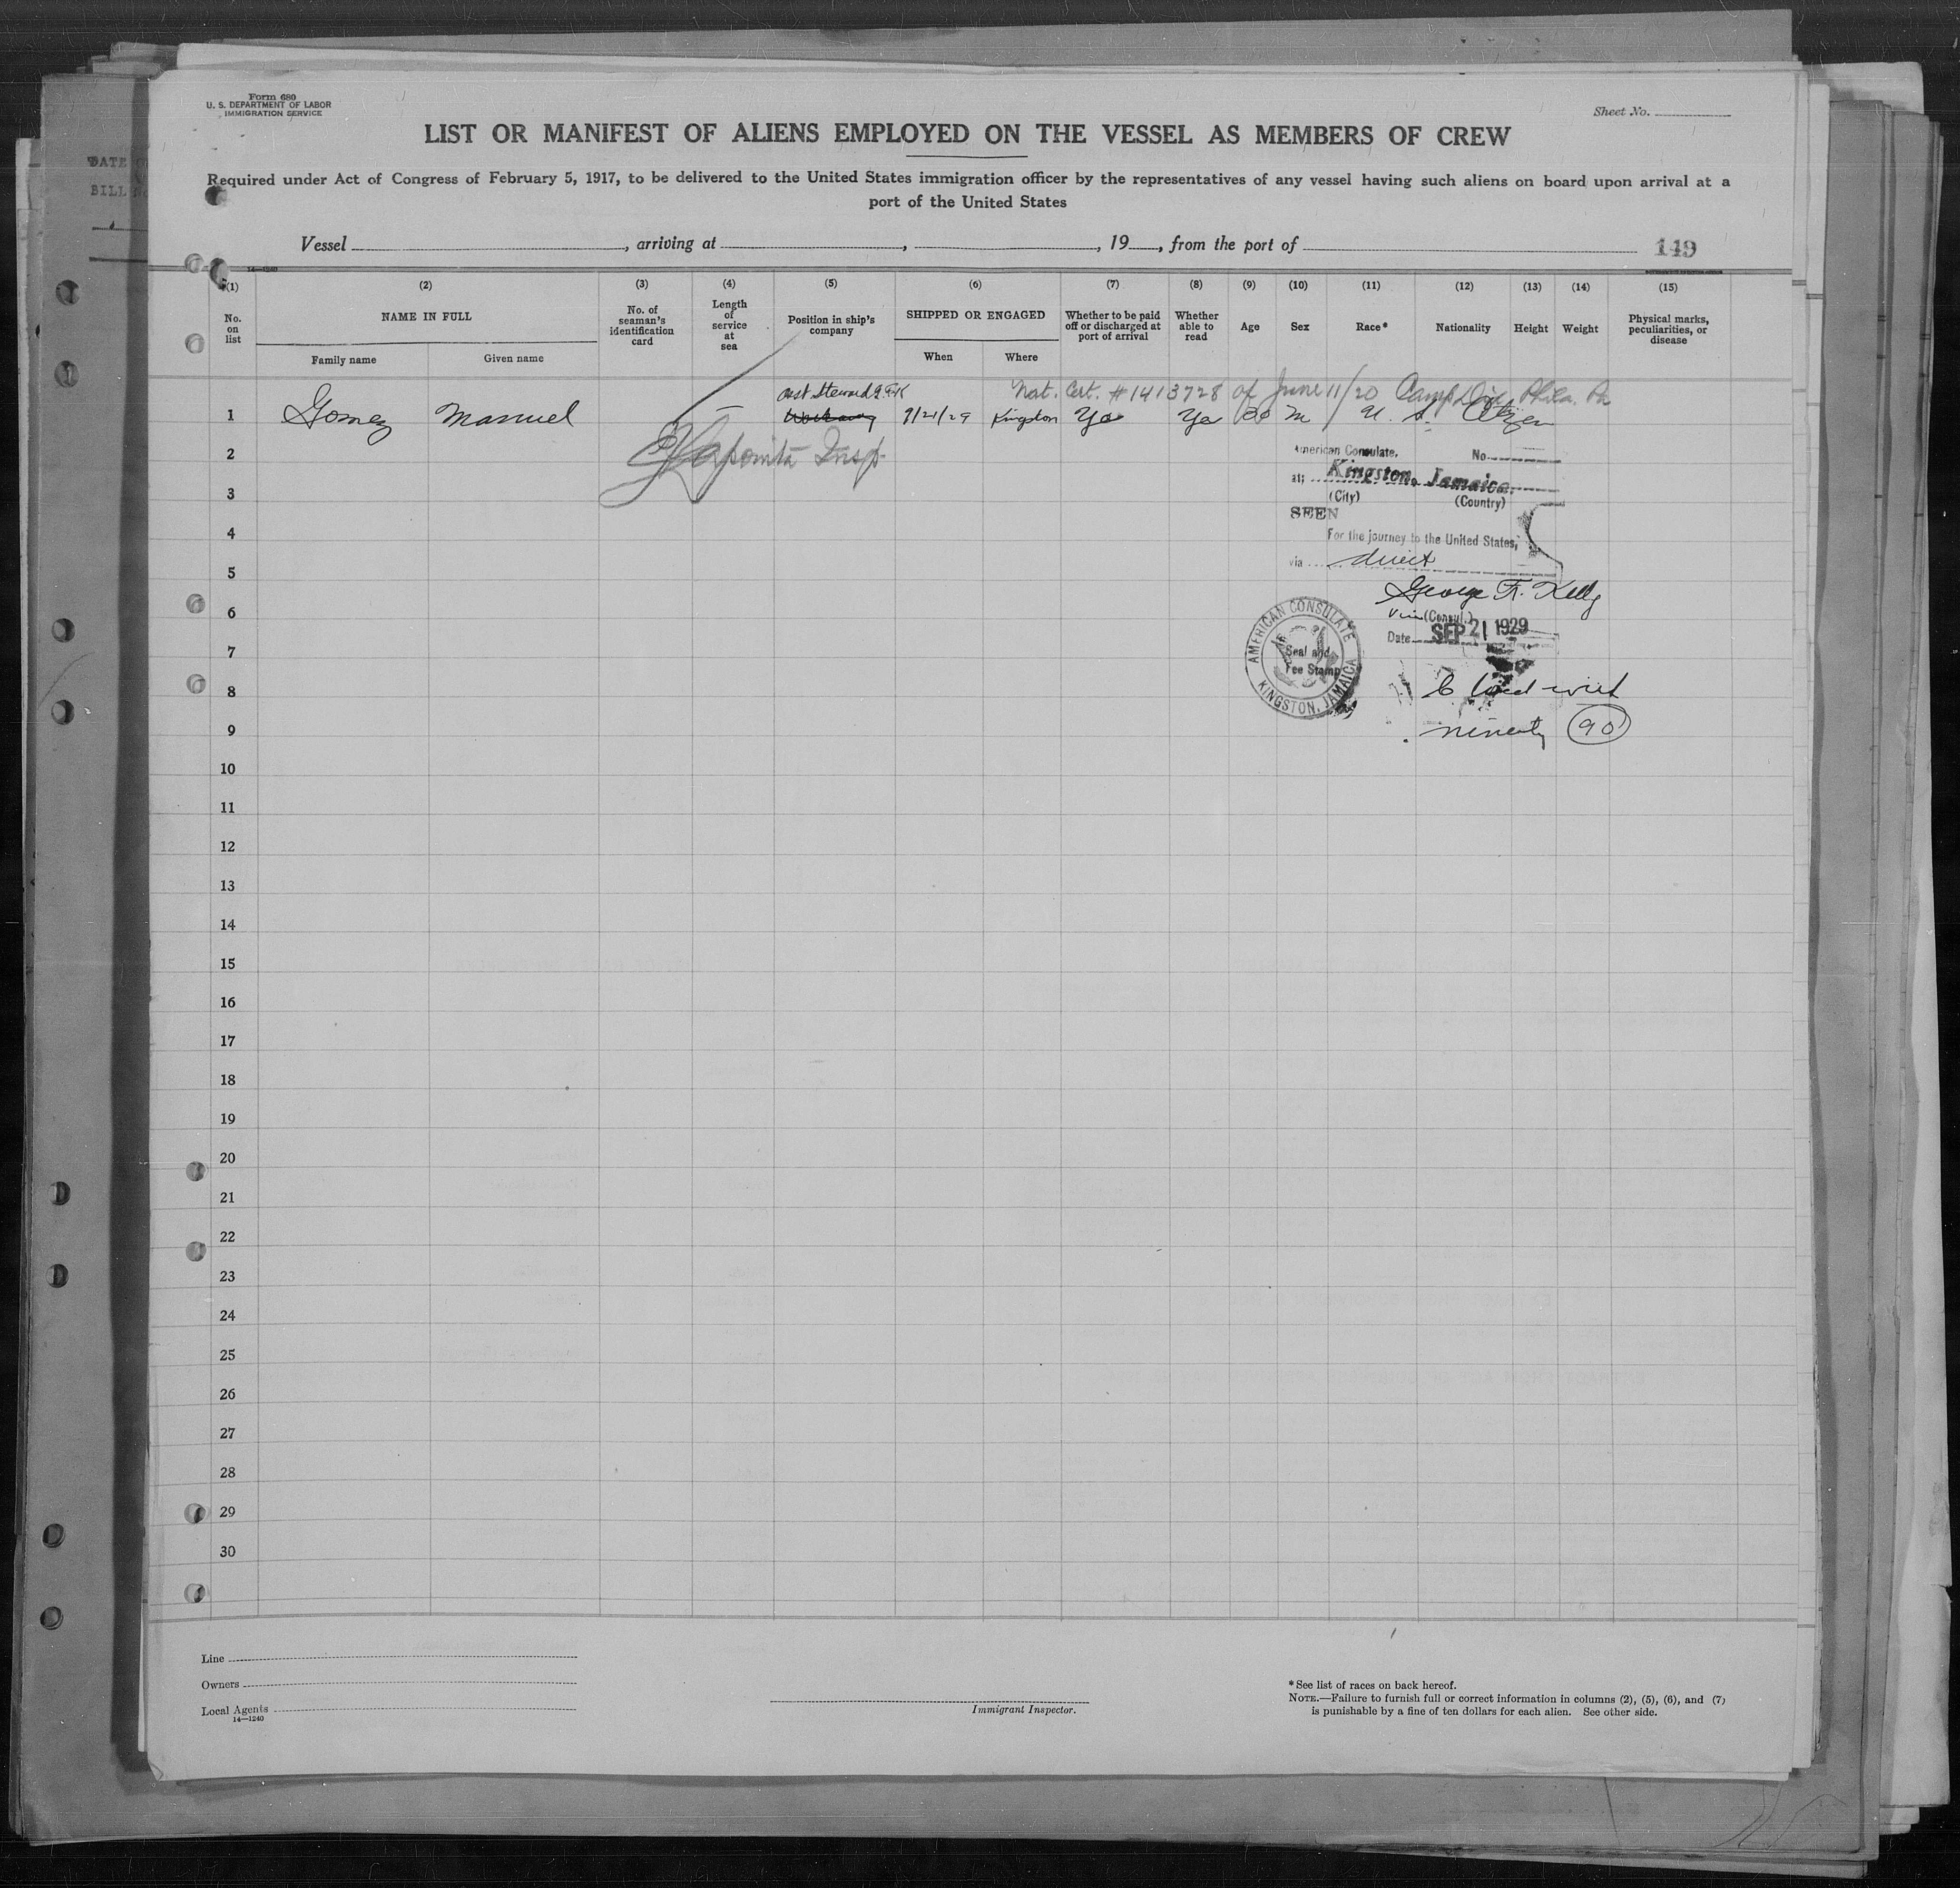 Form 680
U. S. DEPARTMENT OF LABOR
IMMIGRATION SERVICE
Sheet No.
LIST OR MANIFEST OF ALIENS EMPLOYED ON THE VESSEL AS MEMBERS OF CREW
Required under Act of Congress of February 5, 1917, to be delivered to the United States immigration officer by the representatives of any vessel having such aliens on board upon arrival at a
port of the United States
DATE
BILL
Vessel , arriving at , , 19 , from the port of
149
14—1240
(1) (2) (3) (4) (5) (6) (7) (8) (9) (10) (11) (12) (13) (14) (15)
No. on list
NAME IN FULL
Family name Given name
No. of seaman's identification card
Length of service at sea
Position in ship's company
SHIPPED OR ENGAGED
When Where
Whether to be paid off or discharged at port of arrival
Whether able to read
Age
Sex
Race*
Nationality
Height
Weight
Physical marks, peculiarities, or disease
Nat. Cert. #1413728 of June 11/20 Camp Dix Phila. Pa
asst Steward
1 Gomez Manuel — 9/21/29 Kingston Yes Yes 30 m U. S. Citizen
2 Insp.
3
4
5
6
7
8
9
10
11
12
13
14
15
16
17
18
19
20
21
22
23
24
25
26
27
28
29
30
American Consulate, No.
at Kingston, Jamaica.
(City) (Country)
SEEN
For the journey to the United States,
via direct
George F. Kelly
Vice (Consul.)
Date SEP 21 1929
AMERICAN CONSULATE
KINGSTON, JAMAICA
Seal and
Fee Stamp
ninety 90
Line
Owners
Local Agents
14—1240
Immigrant Inspector.
*See list of races on back hereof.
NOTE.—Failure to furnish full or correct information in columns (2), (5), (6), and (7)
is punishable by a fine of ten dollars for each alien. See other side.